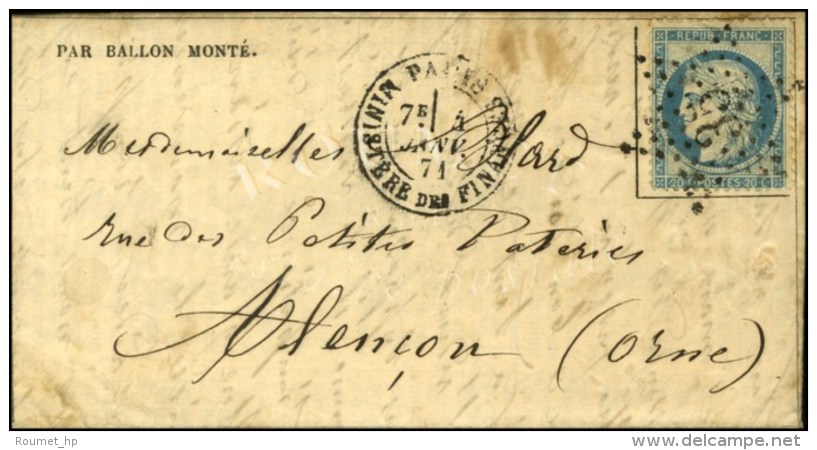 PAR BALLON MONTÉ.
REPUB. FRANC.
20 C. POSTES 20 C.
PARIS
MINISTÈRE DES FINANCES
7E 4
JANV.
71
Mesdemoiselles
rue des Petites Poteries
Alençon (Orne)
Roumet_hp
delcampe.net